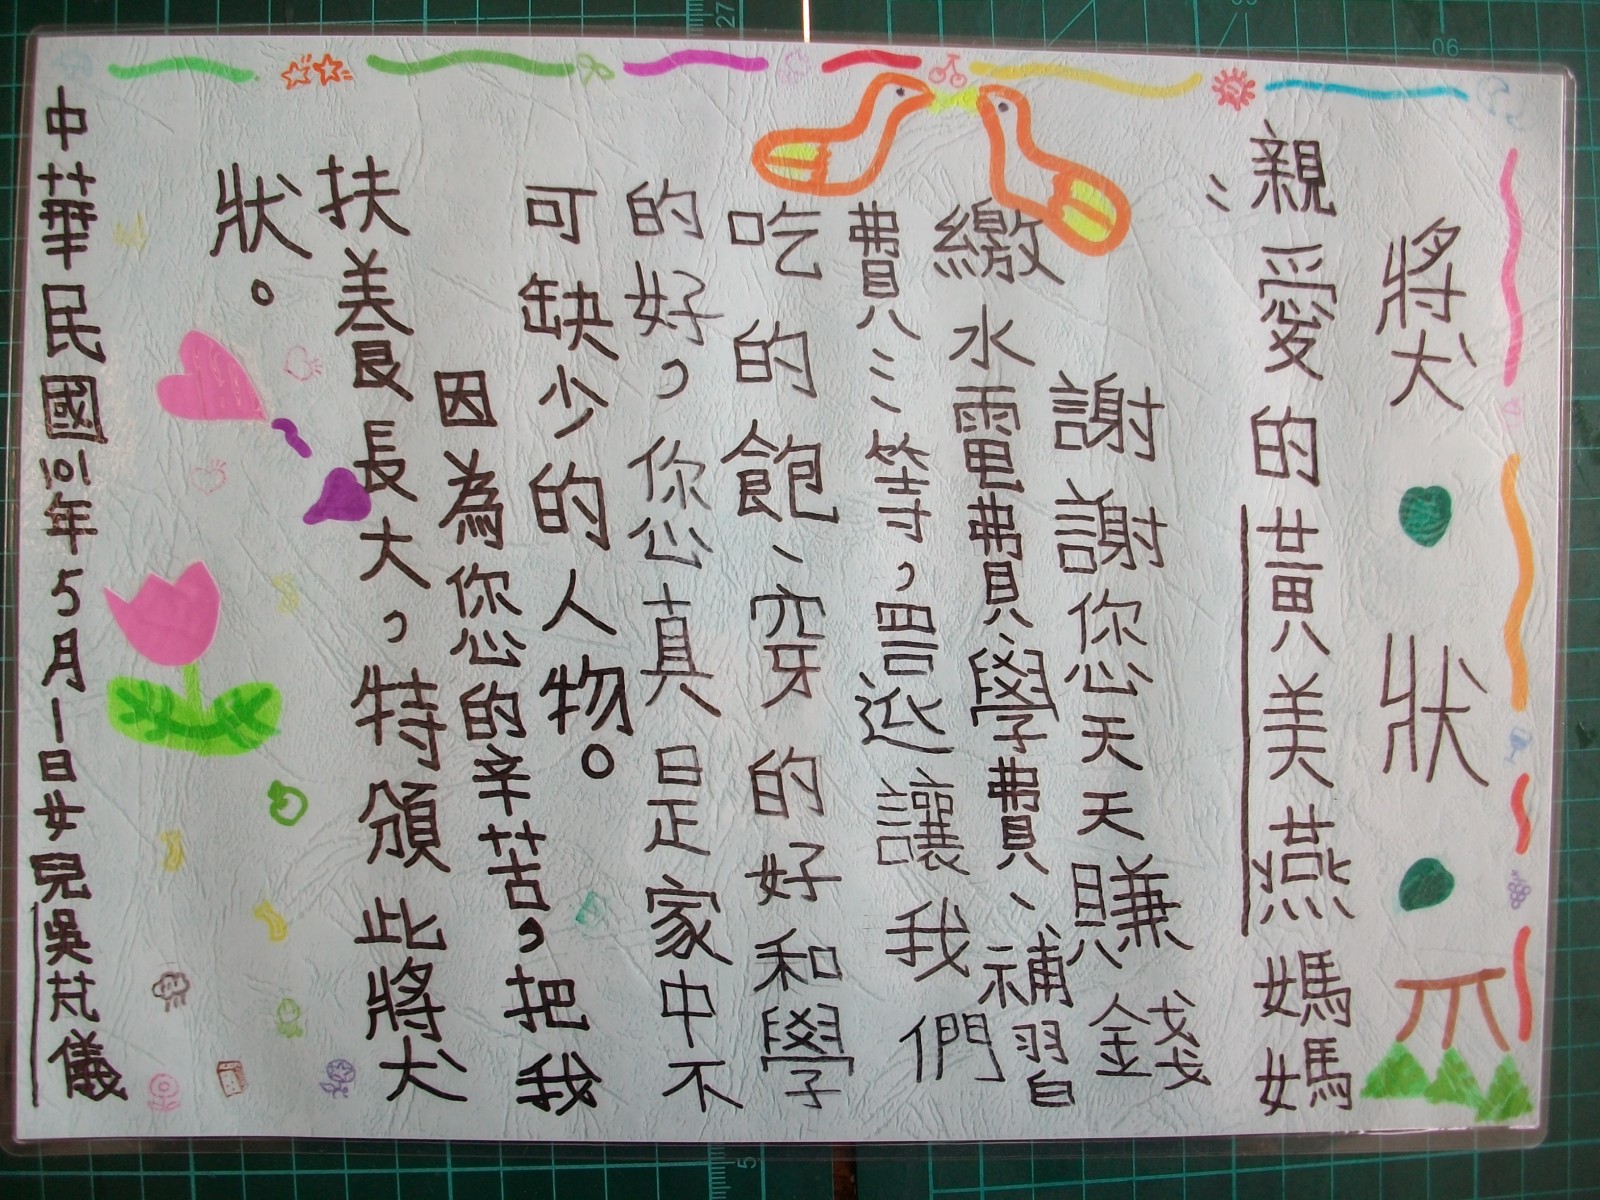 獎狀
親愛的黃美燕媽媽：
謝謝您天天賺金錢
繳水電費、學費、補習
費……等，還讓我們
吃的飽、穿的好和學
的好，您真是家中不
可缺少的人物。
因為您的辛苦，把我
扶養長大，特頒此獎
狀。
中華民國101年5月1日女兒吳芃儀